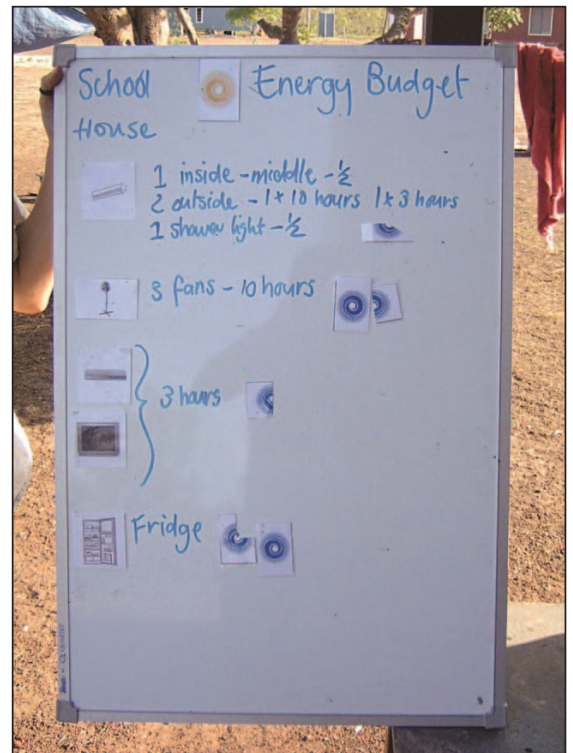 School Energy Budget
House
1 inside - middle - ½
2 outside - 1 x 10 hours 1 x 3 hours
1 shower light - ½
3 fans - 10 hours
3 hours
Fridge